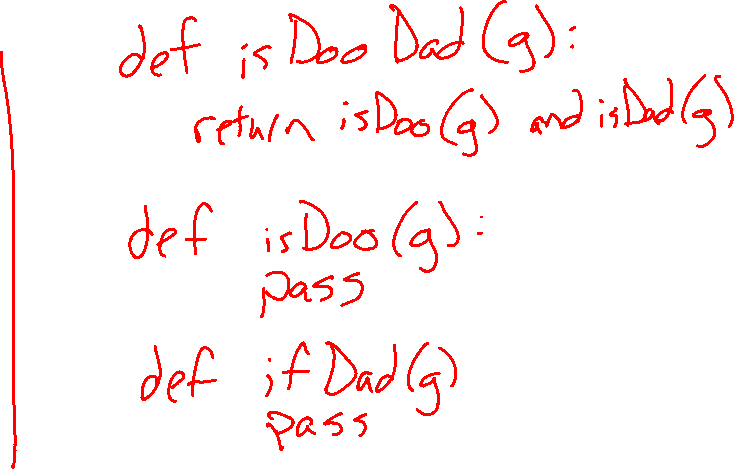 def isDooDad(g):
return isDoo(g) and isDad(g)
def isDoo(g):
pass
def ifDad(g)
pass